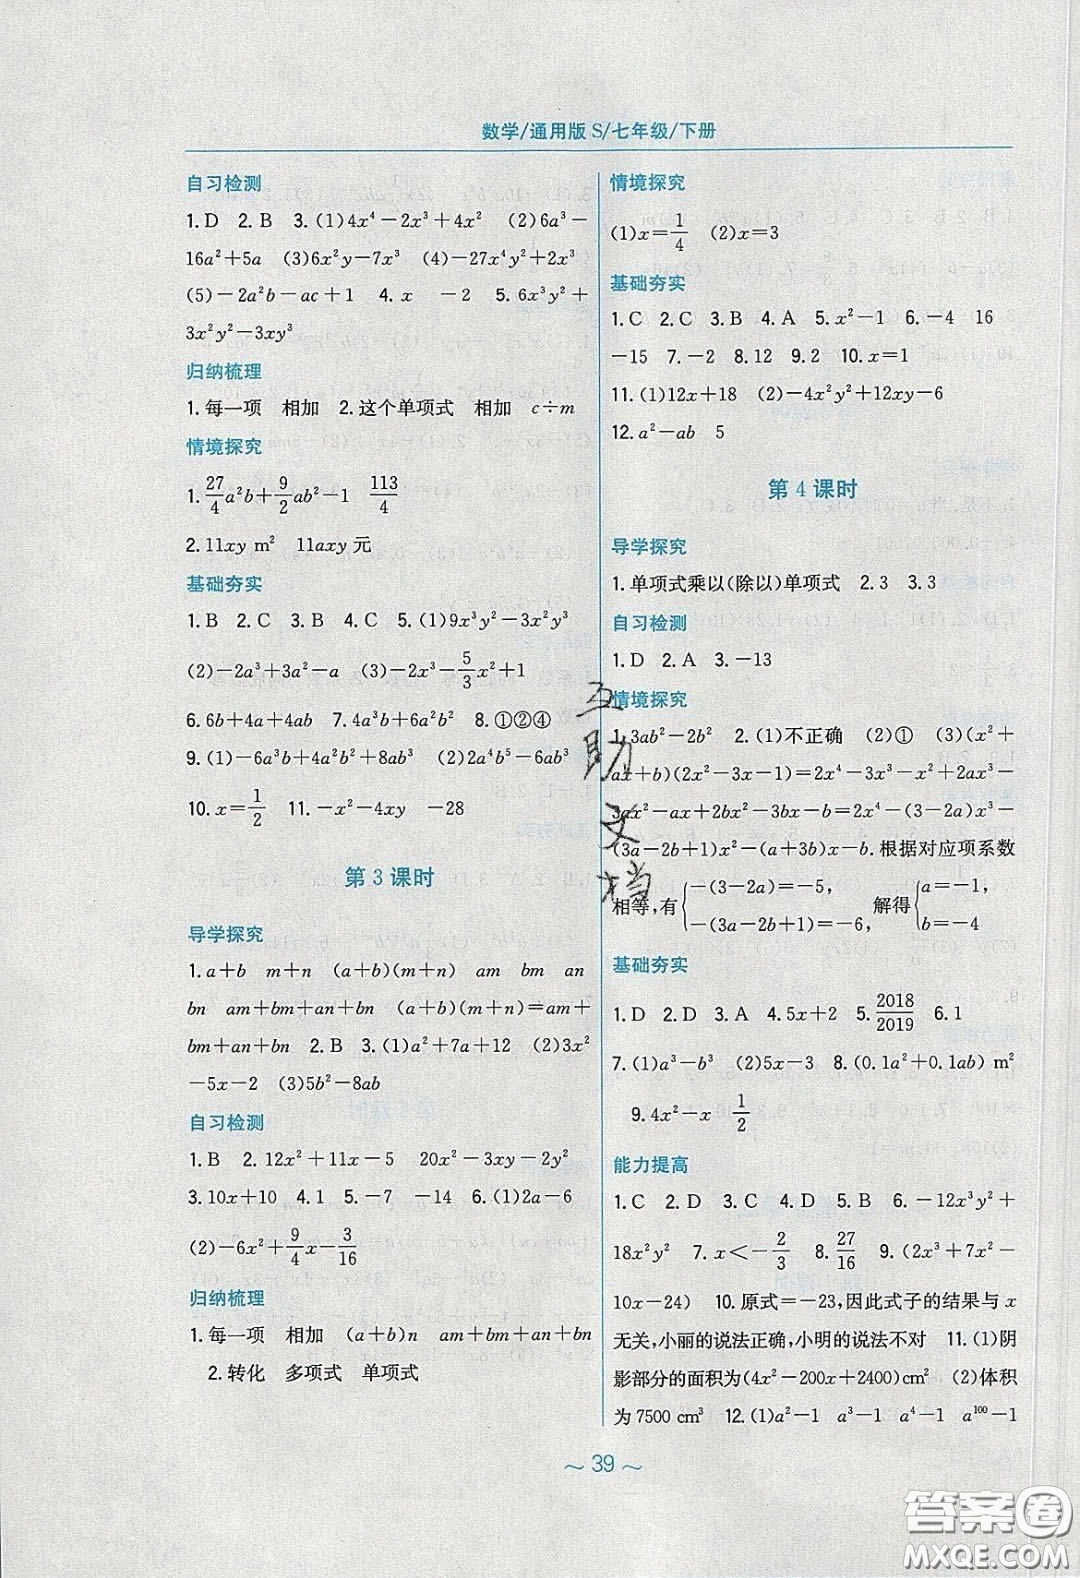 数学/通用版 S/七年级/下册
自习检测
1. D 2. B 3. (1)4x⁴－2x³＋4x² (2)6a³－
16a²＋5a (3)6x²y－7x³ (4)－27x⁴y²＋2x³
(5)－2a²b－ac＋1 4. x －2 5. 6x³y²＋
3x²y²－3xy³
归纳梳理
1. 每一项 相加 2. 这个单项式 相加 c÷m
情境探究
1. 27/4a²b＋9/2ab²－1 113/4
2. 11xy m² 11axy 元
基础夯实
1. B 2. C 3. B 4. C 5. (1)9x³y²－3x²y³
(2)－2a³＋3a²－a (3)－2x³－5/3x²＋1
6. 6b＋4a＋4ab 7. 4a³b＋6a² 8. ①②④
9. (1)－6a³b＋4a²b²＋8ab³ (2)2a⁴b⁵－6ab³
10. x＝1/2 11. －x²－4xy －28
第 3 课时
导学探究
1. a＋b m＋n (a＋b)(m＋n) am bm an
bn am＋bm＋an＋bn (a＋b)(m＋n)＝am＋
bm＋an＋bn 2. B 3. (1)a²＋7a＋12 (2)3x²
－5x－2 (3)5b²－8ab
自习检测
1. B 2. 12x²＋11x－5 20x²－3xy－2y²
3. 10x＋10 4. 1 5. －7 －14 6. (1)2a－6
(2)－6x²＋9/4x－3/16
归纳梳理
1. 每一项 相加 (a＋b)n am＋bm＋an＋bn
2. 转化 多项式 单项式
情境探究
(1)x＝1/4 (2)x＝3
基础夯实
1. C 2. C 3. B 4. A 5. x²－1 6. －4 16
－15 7. －2 8. 12 9. 2 10. x＝1
11. (1)12x＋18 (2)－4x²y²＋12xy－6
12. a²－ab 5
第 4 课时
导学探究
1. 单项式乘以(除以)单项式 2. 3 3. 3
自习检测
1. D 2. A 3. －13
情境探究
1. 3ab²－2b² 2. (1)不正确 (2)① (3)(x²＋
ax＋b)(2x²－3x－1)＝2x⁴－3x³－x²＋2ax³－
3ax²－ax＋2bx²－3bx－b＝2x⁴－(3－2a)x³－
(3a－2b＋1)x²－(a＋3b)x－b. 根据对应项系数
相等，有{－(3－2a)＝－5, －(3a－2b＋1)＝－6, 解得{a＝－1, b＝－4
基础夯实
1. D 2. D 3. A 4. 5x＋2 5. 2018/2019 6. 1
7. (1)a³－b³ (2)5x－3 8. (0.1a²＋0.1ab) m²
9. 4x²－x 1/2
能力提高
1. C 2. D 3. C 4. D 5. B 6. －12x³y²＋
18x²y² 7. x＜－2/3 8. 27/16 9. (2x³＋7x²－
10x－24) 10. 原式＝－23，因此式子的结果与 x
无关，小丽的说法正确，小明的说法不对 11. (1)阴
影部分的面积为(4x²－200x＋2400)cm² (2)体积
为 7500 cm³ 12. (1)a²－1 a³－1 a⁴－1 a¹⁰⁰－1
互助文档
～ 39 ～
答案圈
MXQE.COM